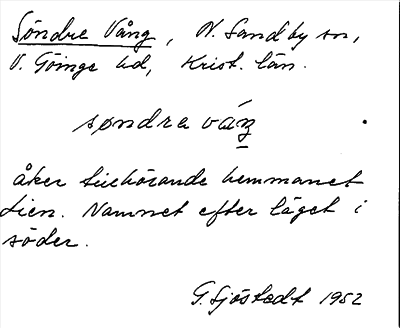 Söndre Vång, N. Sandby sn,
V. Göinge hd, Krist. län.
søndra váŋ
åker tillhörande hemmanet
Lien. Namnet efter läget i
söder.
G. Sjöstedt 1952